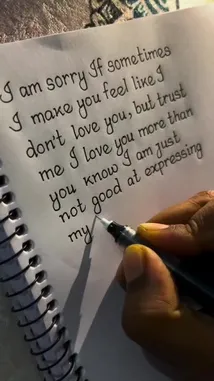 I am sorry If sometimes
I make you feel like I
don't love you, but trust
me I love you more than
you know I am just
not good at expressing
my